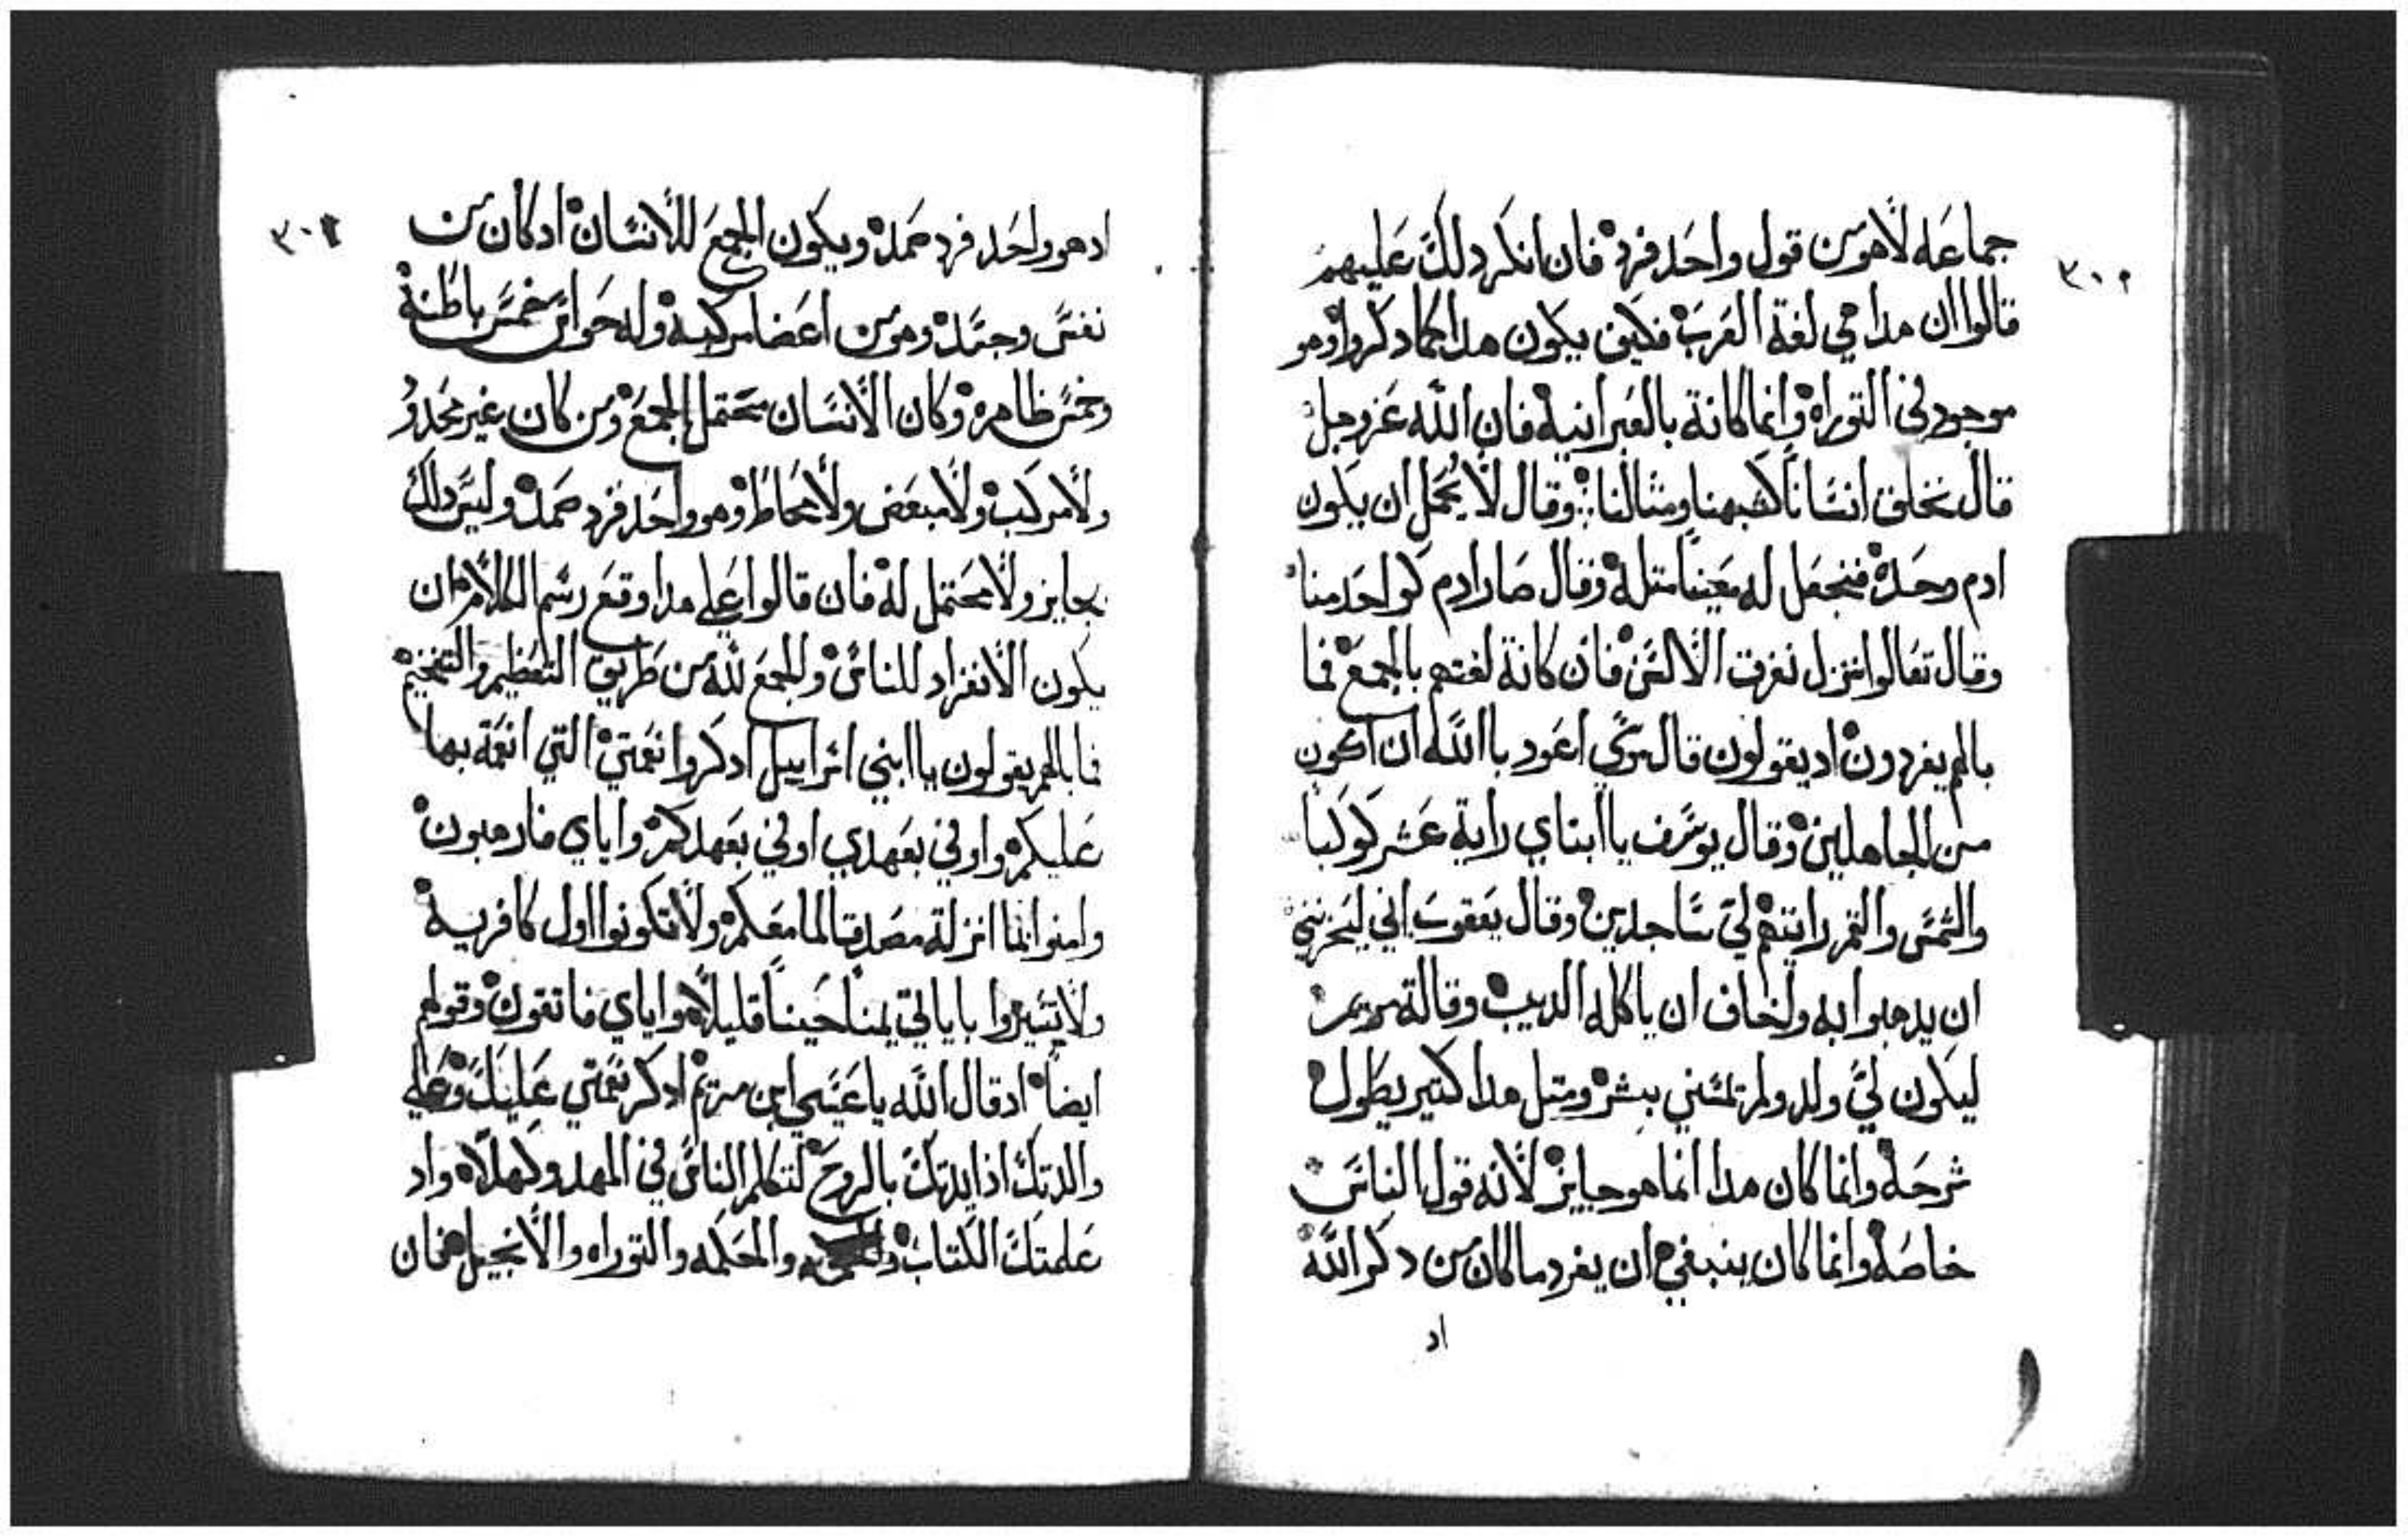 ٣٠٥
جماعه لا هو من قول واحد فرد فان انكر دلك عليهم
قالوا ان هدا هي لغة العرب فكيف يكون هدا كما دكروا وهو
موجود في التوراه وانما كانة بالعبرانيه فان الله عز وجل
قال نخلق انسانا كشبهنا ومثالنا وقال لا يجمل ان يكون
ادم وحده فنجعل له معينا متله وقال صار ادم كواحد منا
وقال تعالوا ننزل نفرق الالسن فان كانة لغتهم بالجمع فما
بالهم يفردون اد يقولون قال موسي اعود باالله ان اكون
من الجاهلين وقال يوسف ياابتاي راية عشر كوكبا
والشمس والقمر رايتهم لي ساجدين وقال يعقوب اني ليحزنني
ان يدهبوا به واخاف ان ياكله الديب وقالة مريم
ليكون لي ولد ولم تمسني بشر ومتل هدا كتير يطول
شرحه وانما كان هدا انما هو جايز لانه قول الناس
خاصه وانما كان ينبغي ان يفرد ما كان من دكر الله
اد
٣٠٦
اد هو واحد فرد صمد ويكون الجمع للانسان اد كان من
نفس وجسد وهو من اعضا مركبه وله حواس خمس باطنة
وخمس ظاهره وكان الانسان محتمل الجمع ومن كان غير محدود
ولا مركب ولا مبعض ولا محاط وهو واحد فرد صمد وليس دلك
بجايز ولا محتمل له فان قالوا علي هدا وقع رسم الكلام ان
يكون الانفراد للناس والجمع لله من طريق التعظيم والتفخيم
فما بالهم يقولون ياابني اسراييل ادكروا نعمتي التي انعمة بها
عليكم واوفي بعهدي اوفي بعهدكم واياي فارهبون
وامنوا بما انزلة مصدقا لما معكم ولا تكونوا اول كافر به
ولا تشتروا باياتي قليلا واياي فاتقون وقولهم
ايضا ادقال الله يا عيسي ابن مريم ادكر نعمتي عليك وعلي
والدتك اذ ايدتك بالروح لتكلم الناس في المهد وكهلا واد
علمتك الكتاب والحكمه والتوراه والانجيل فان